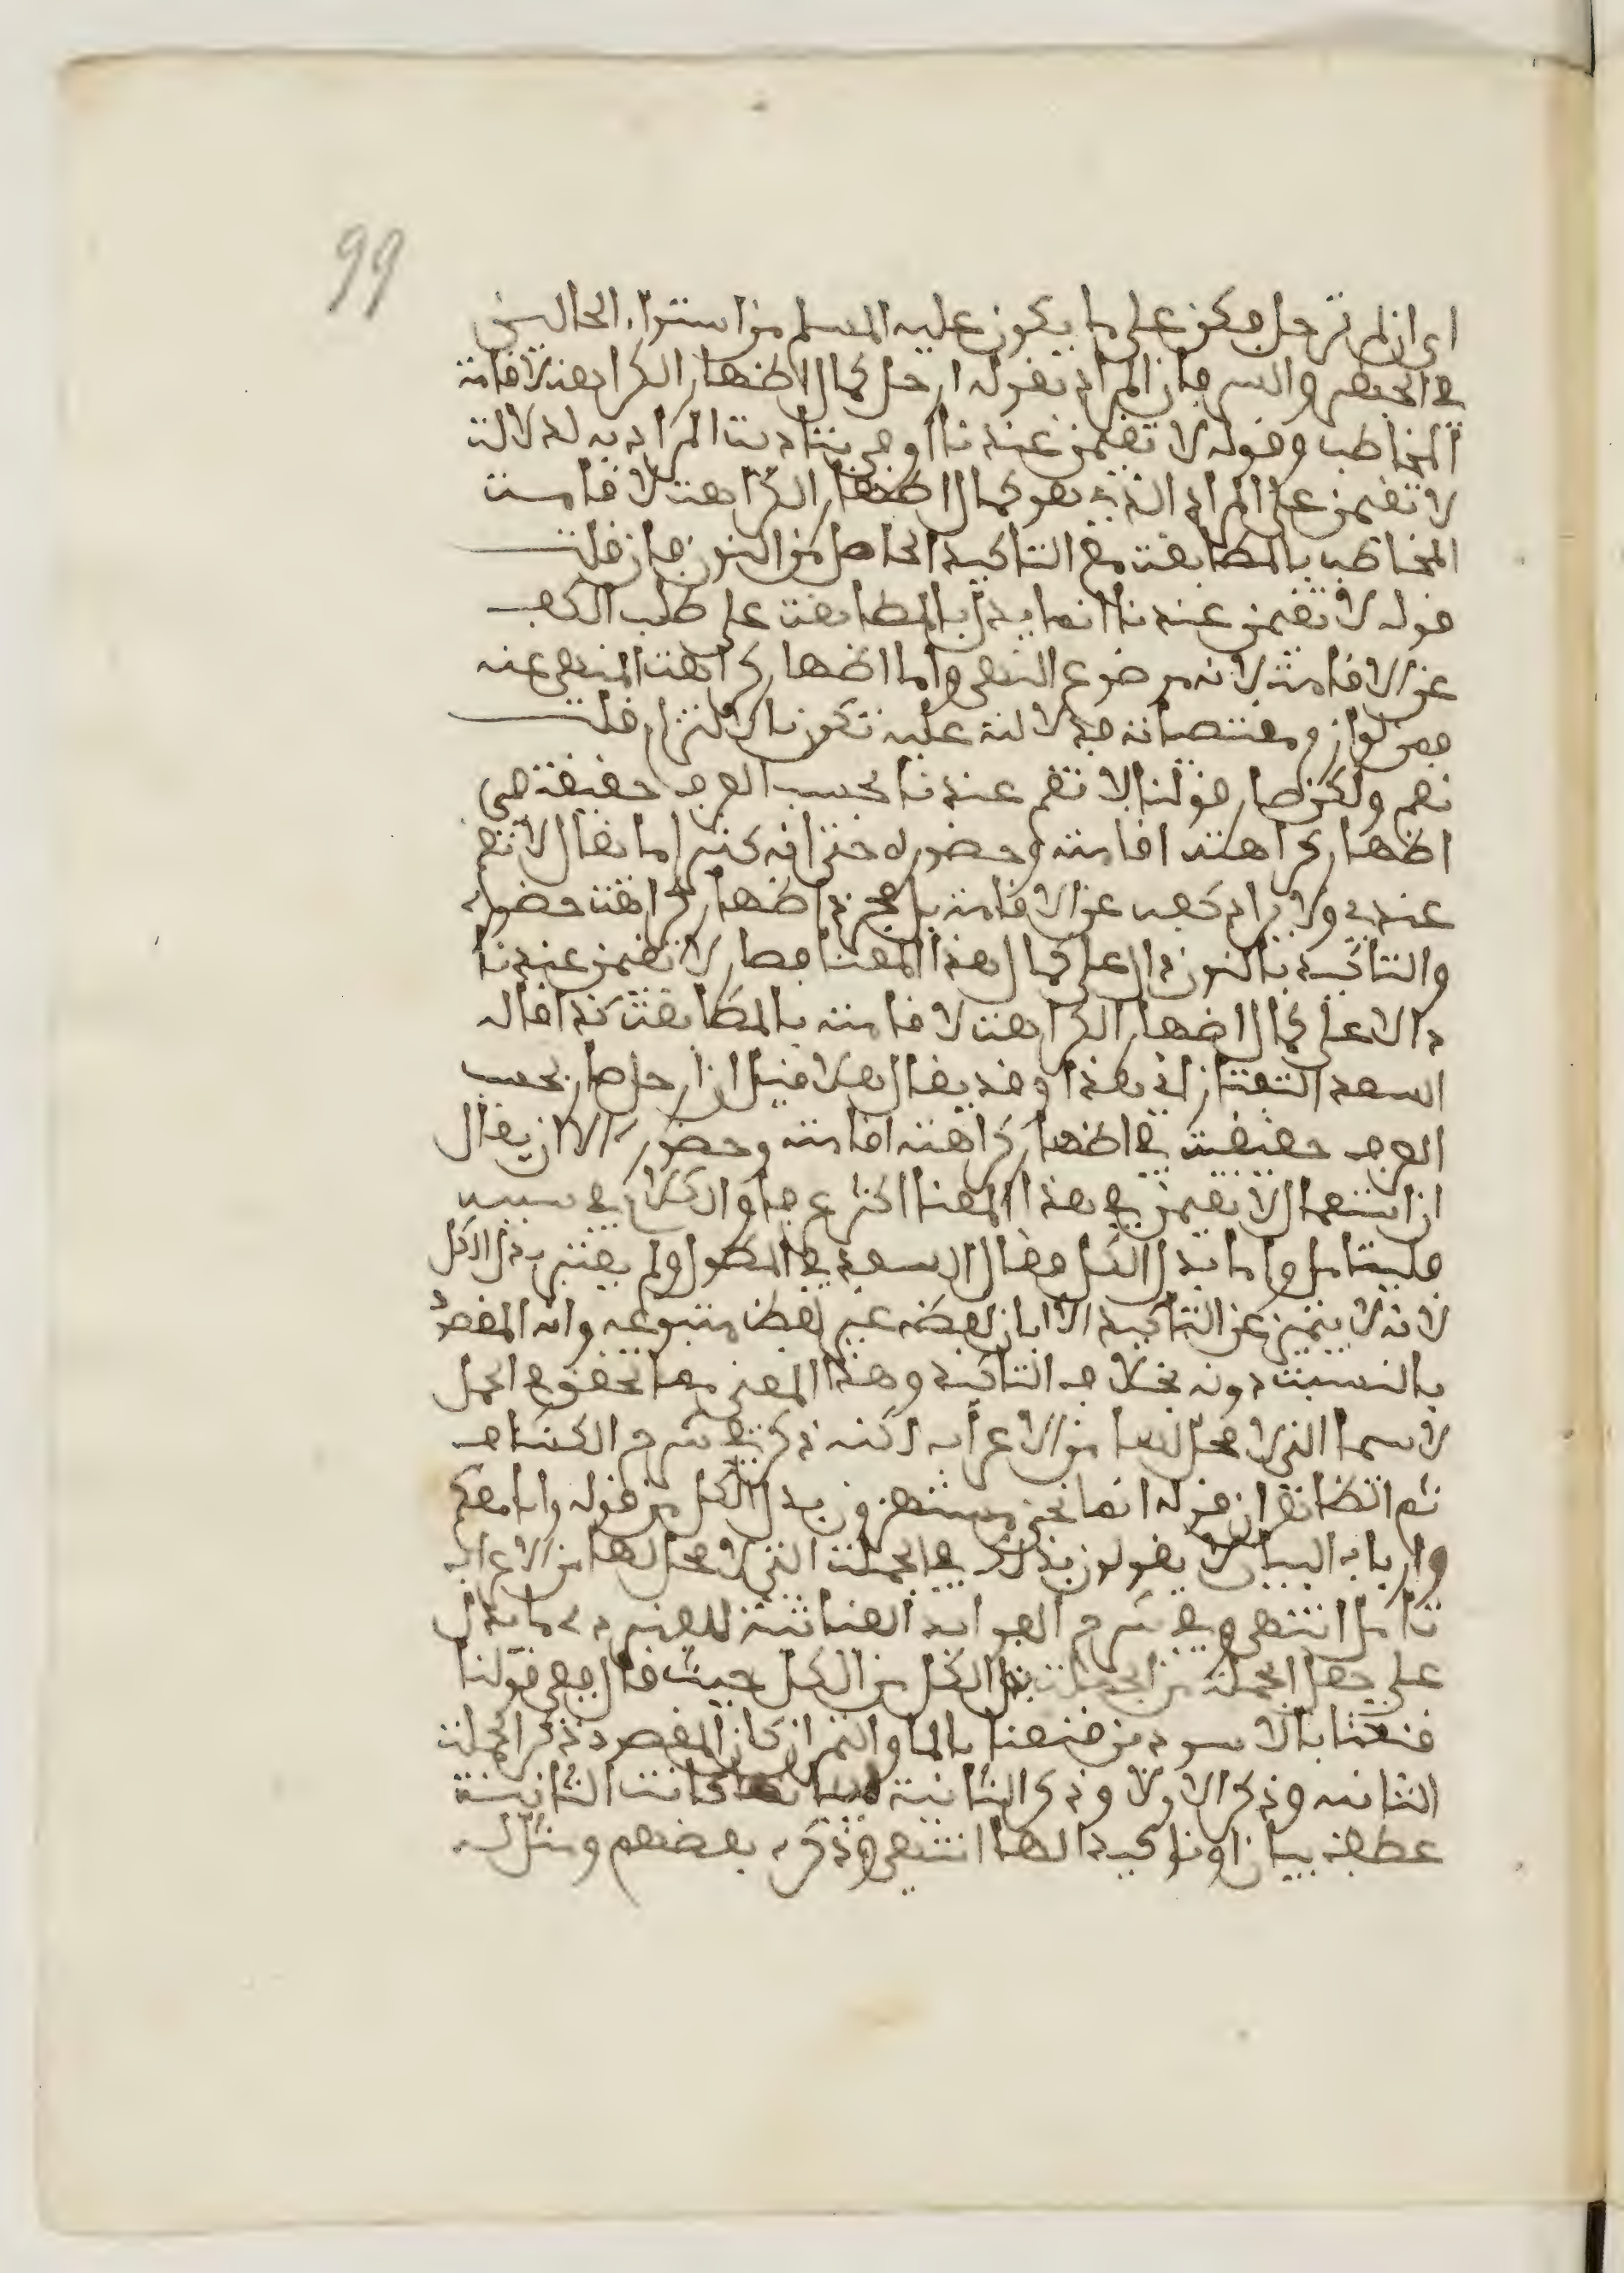 99
اي ان لم ترحل فكن على ما يكون عليه المسلم من استواء الحالين
في الجهر والسر فان المراد بقوله ارحل كمال اظهار الكراهة لاقامة
المخاطب وقوله لا تقيمن عندنا اوفى بتادية المراد به لدلالة
لا تقيمن على المراد الذي هو كمال اظهار الكراهة لاقامة
المخاطب بالمطابقة مع التاكيد الحاصل من النون فان قلت
قوله لا تقيمن عندنا انما يدل بالمطابقة على طلب الكف
عن الاقامة لانه موضوع النهي واما اظهار كراهة المنهي عنه
فمن لوازم ومقتضياته فدلالته عليه تكون بالالتزام قلت
نعم ولكن صار قولنا لا تقم عندنا بحسب العرف حقيقة في
اظهار كراهة اقامته وحضوره حتى انه كثيرا ما يقال لا تقم
عندي ولا يراد كفه عن الاقامة بل مجرد اظهار كراهة حضوره
والتاكيد بالنون دال على كمال هذا المعنا فصار لا تقيمن عندنا
دالا على كمال اظهار الكراهة لاقامته بالمطابقة كذا قاله
السعد التفتازاني هذا وقد يقال هلا قيل ان ارحل صار بحسب
العرف حقيقة في اظهار كراهة اقامته وحضوره الا ان يقال
ان استعمال لا تقيمن في هذا المعنا اكثر عرفا والكلام في سببه
فليتامل واما بدل الكل فقال السعد في المطول ولم يعتبر بدل الكل
لانه لا يتميز عن التاكيد الا بان لفظه غير لفظ متبوعه وانه المقصود
بالنسبة دونه بخلاف التاكيد وهذا المعنى مما تحقق في الجمل
لاسيما التي لا محل لها من الاعراب لكنه ذكر في شرح الكشاف
ثم الظاهر ان قوله انما نحن مستهزون بدل الكل من قوله انا معكم
وارباب البيان لا يقولون بذلك في الجملة التي لا محل لها من الاعراب
تامل انتهى وفي شرح الفوايد الغياثية للفنردي ما يدل
على جعل الجملة من الجملة بدل الكل من الكل حيث قال ففي قولنا
قنعنا بالاسودين قنعنا بالما والتمر ان كان المقصود ذكر الجملة
الثانية وذكر الاولا وذكر الثانية كانت الثانية
عطف بيان او تاكيدا لها انتهى وذكره بعضهم ومثال